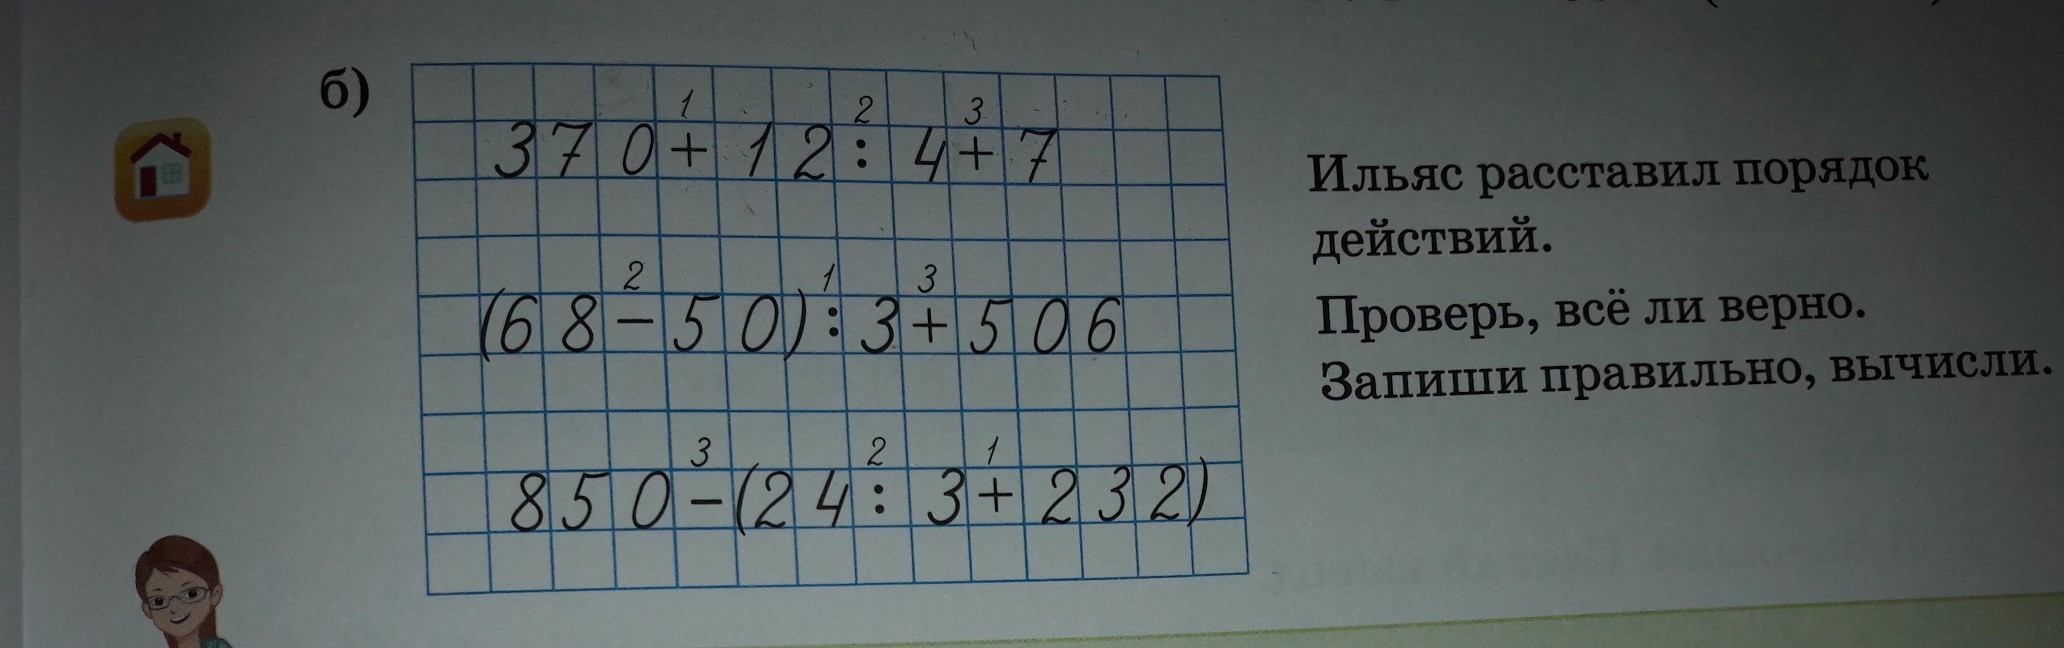 б)
1 2 3
370+12:4+7
2 1 3
(68-50):3+506
3 2 1
850-(24:3+232)
Ильяс расставил порядок
действий.
Проверь, всё ли верно.
Запиши правильно, вычисли.